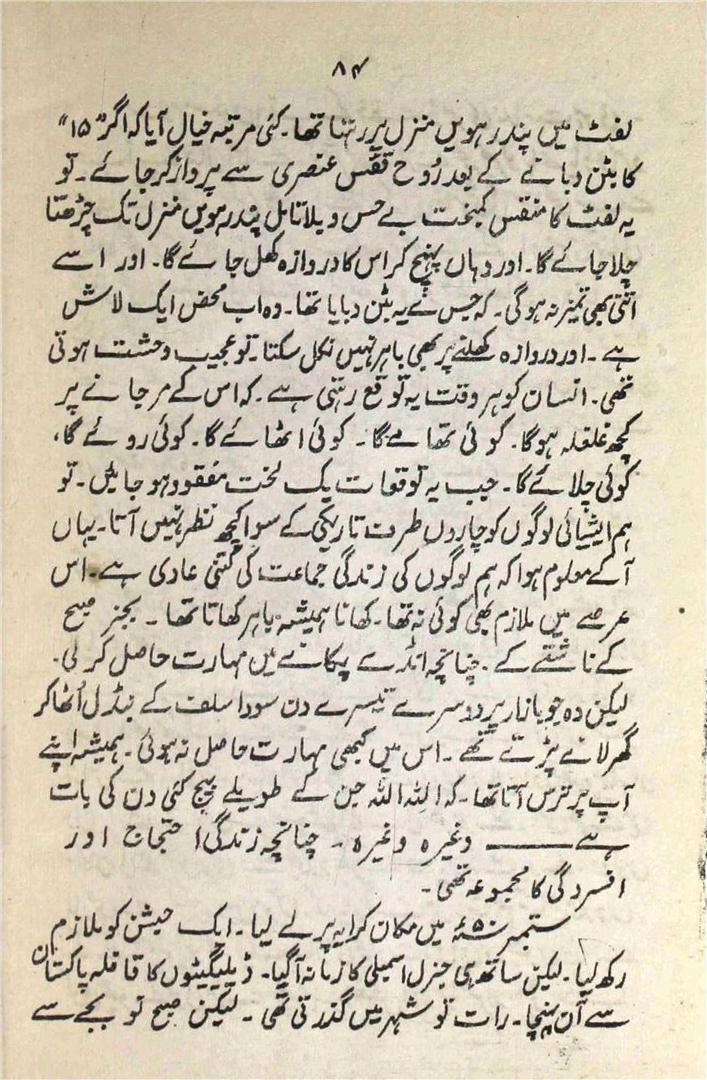 ۸۴
لفٹ میں پندرہویں منزل پر رہتا تھا۔ کئی مرتبہ خیال آیا کہ اگر "۱۵"
کا بٹن دبانے کے بعد رُوح قفس عنصری سے پرواز کر جائے۔ تو
یہ لفٹ کا متقفس کمبخت بے حس و بلا تامل پندرہویں منزل تک چڑھتا
چلا جائے گا۔ اور وہاں پہنچ کر اس کا دروازہ کھل جائے گا۔ اور اسے
اتنی بھی تمیز نہ ہوگی۔ کہ جس نے یہ بٹن دبایا تھا۔ وہ اب محض ایک لاش
ہے۔ اور دروازہ کھلنے پر بھی باہر نہیں نکل سکتا۔ تو عجیب وحشت ہوتی
تھی۔ انسان کو ہر وقت یہ توقع رہتی ہے۔ کہ اس کے مر جانے پر
کچھ غلغلہ ہوگا۔ کوئی تھامے گا۔ کوئی اٹھائے گا۔ کوئی روئے گا،
کوئی چلائے گا۔ جب یہ توقعات یک لخت مفقود ہو جائیں۔ تو
ہم ایشیائی لوگوں کو چاروں طرف تاریکی کے سوا کچھ نظر نہیں آتا۔ یہاں
آ کے معلوم ہوا کہ ہم لوگوں کی زندگی جماعت کی کتنی عادی ہے۔ اس
عرصے میں ملازم بھی کوئی نہ تھا۔ کھانا ہمیشہ باہر کھاتا تھا۔ بجز صبح
کے ناشتے کے۔ چنانچہ انڈے پکانے میں مہارت حاصل کر لی۔
لیکن وہ جو بازار پر دوسرے تیسرے دن سودا سلف کے بنڈل اُٹھا کر
گھر لانے پڑتے تھے۔ اس میں کبھی مہارت حاصل نہ ہوئی۔ ہمیشہ اپنے
آپ پر ترس آتا تھا۔ کہ اللہ اللہ جن کے طویلے بیچ کئی دن کی بات
ہے ——— وغیرہ وغیرہ۔ چنانچہ زندگی احتجاج اور
افسردگی کا مجموعہ تھی۔
ستمبر ۵۰ء میں مکان کرایہ پر لے لیا۔ ایک حبشن کو ملازم
رکھ لیا۔ لیکن ساتھ ہی جنرل اسمبلی کا زمانہ آ گیا۔ ڈیلیگیٹوں کا قافلہ پاکستان
سے آن پہنچا۔ رات تو شہر میں گذرتی تھی۔ لیکن صبح نو بجے سے